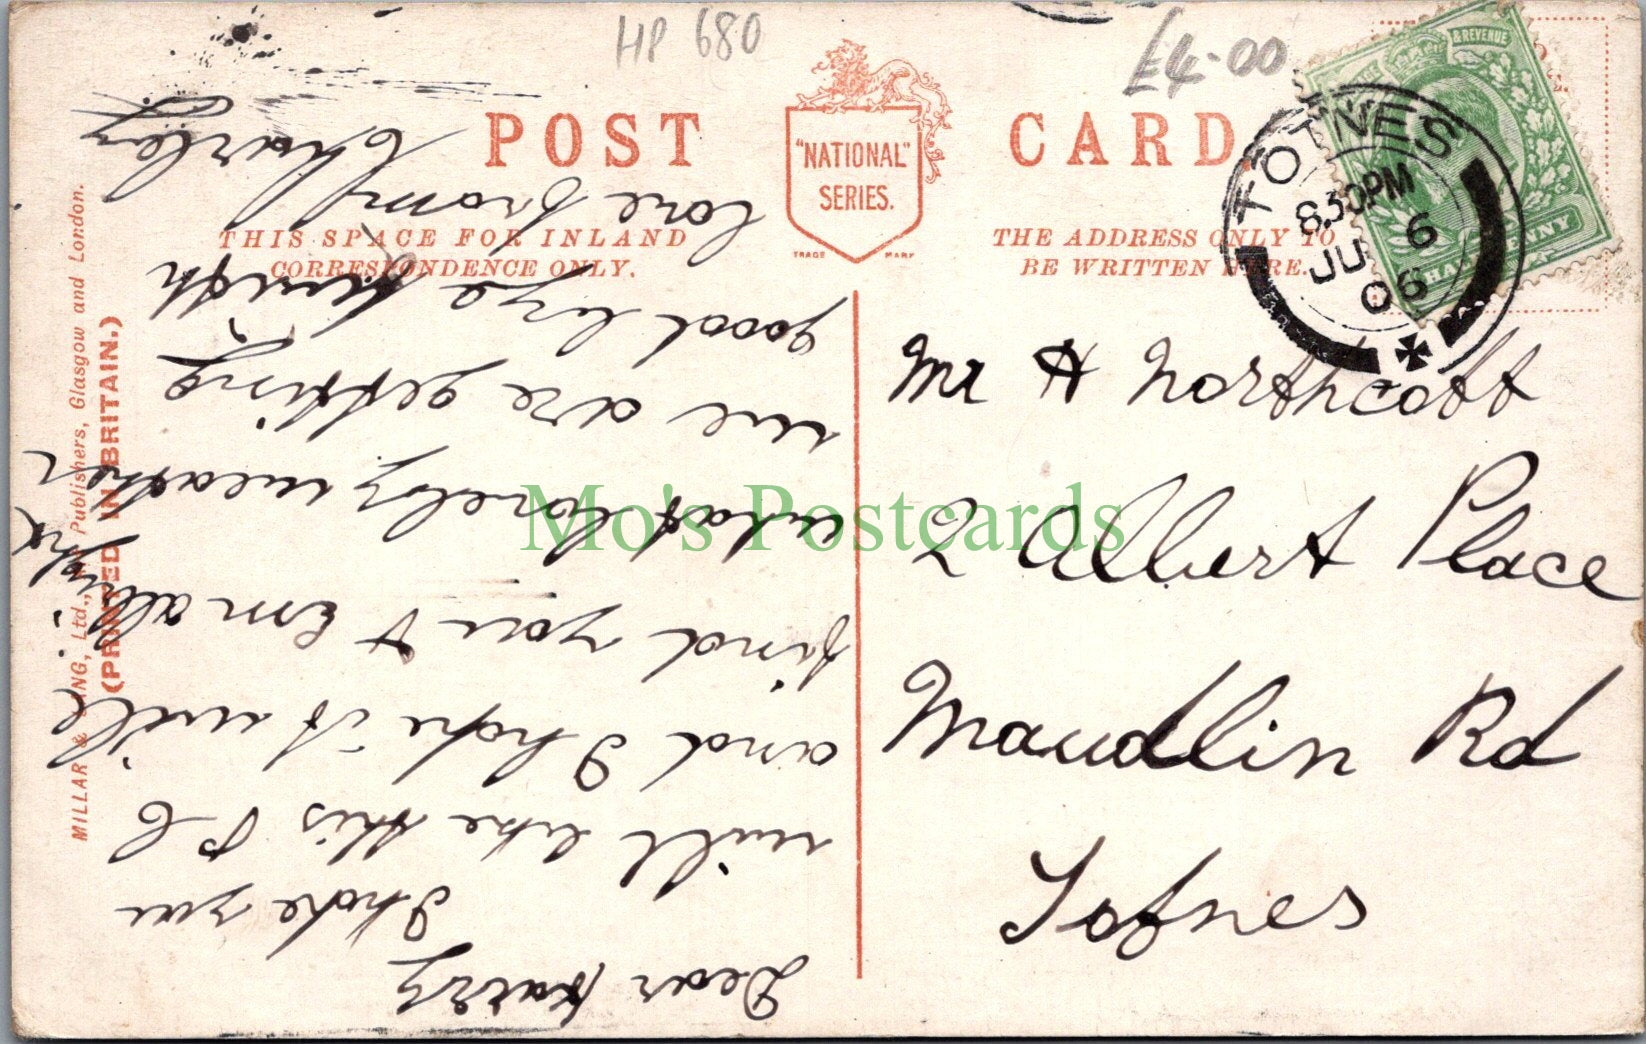 HP 680
£4.00
POST CARD
"NATIONAL"
SERIES.
TRADE MARK
& REVENUE
TOTNES
8.30PM
JU 6
06
THIS SPACE FOR INLAND
CORRESPONDENCE ONLY.
THE ADDRESS ONLY TO
BE WRITTEN HERE.
Mr H Northcott
2 Albert Place
Maudlin Rd
Totnes
Dear Harry
I hope you
will like this P C
and I hope it will
find you & Em alright
what lovely weather
we are getting
good bye
love from
Charley
MILLAR & LANG, Ltd., Art Publishers, Glasgow and London.
(PRINTED IN BRITAIN.)
Mo's Postcards